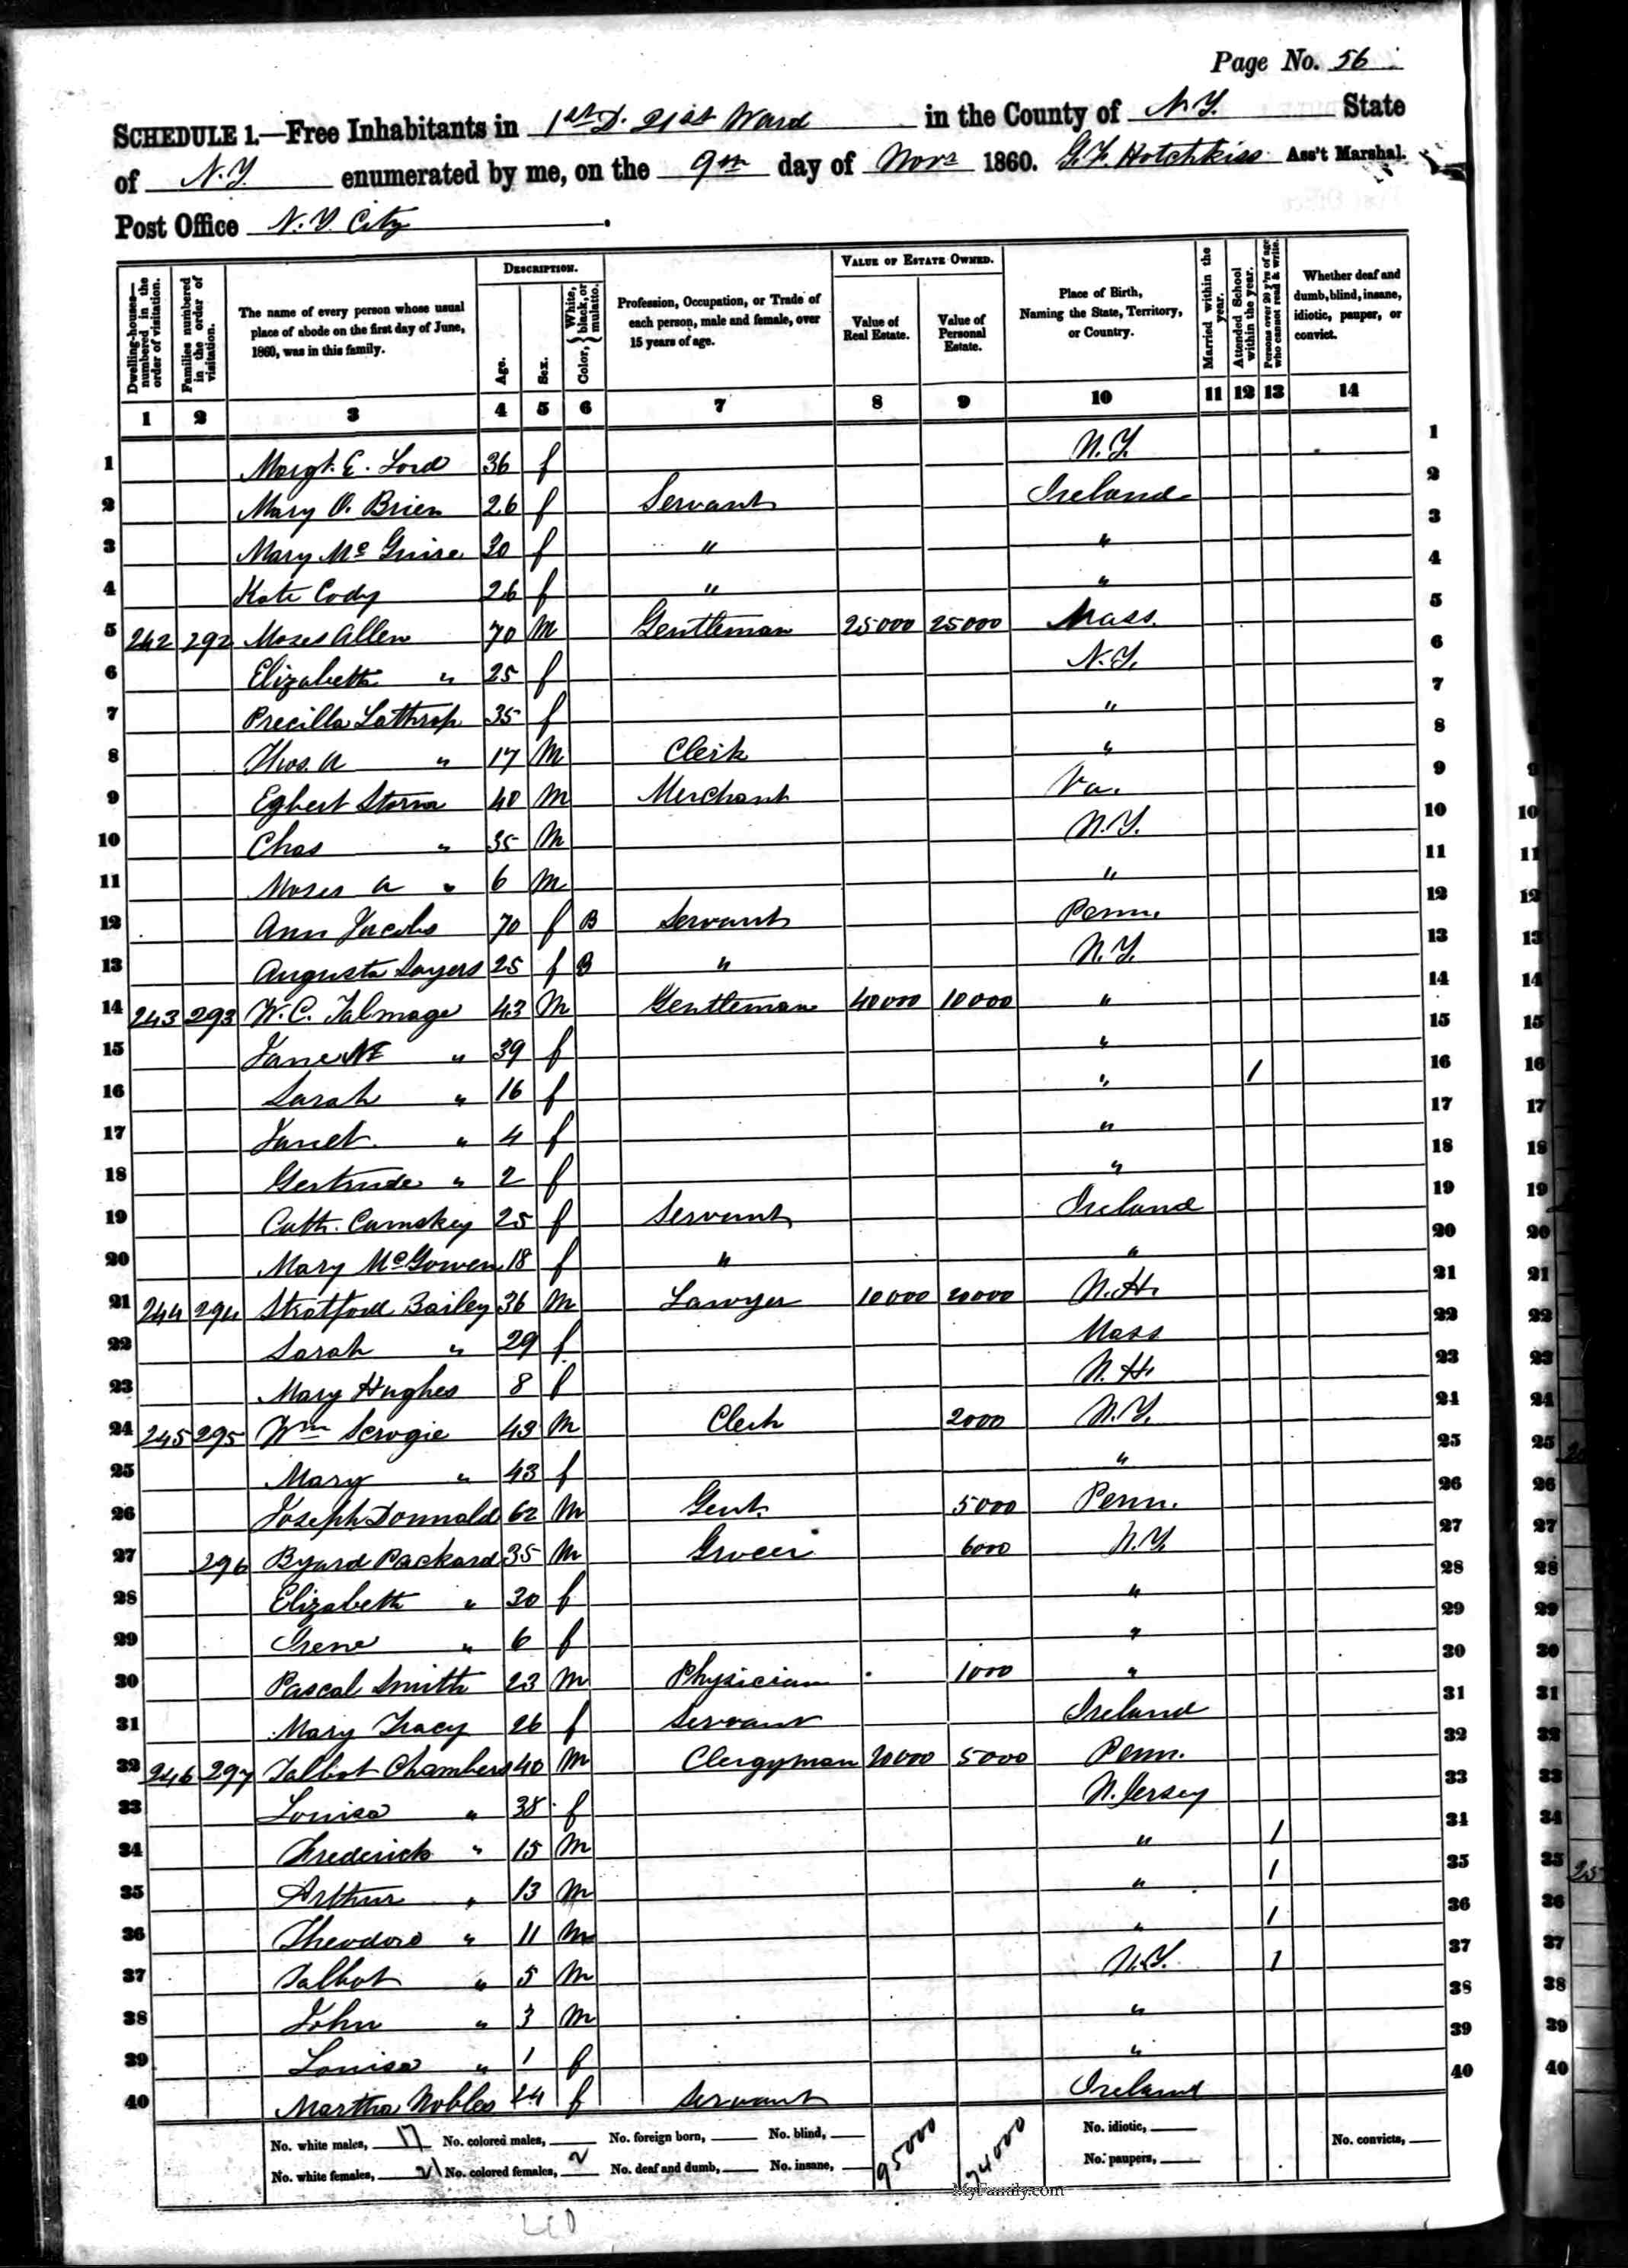 Page No. 56
SCHEDULE 1.—Free Inhabitants in 1st D. 21st Ward in the County of N.Y. State
of N.Y. enumerated by me, on the 9th day of Novr 1860. G.F. Hotchkiss Ass't Marshal.
Post Office N.Y. City
Dwelling-houses—numbered in the order of visitation. Families numbered in the order of visitation. The name of every person whose usual place of abode on the first day of June, 1860, was in this family. DESCRIPTION. Age. Sex. Color, White, black, or mulatto. Profession, Occupation, or Trade of each person, male and female, over 15 years of age. VALUE OF ESTATE OWNED. Value of Real Estate. Value of Personal Estate. Place of Birth, Naming the State, Territory, or Country. Married within the year. Attended School within the year. Persons over 20 y'rs of age who cannot read & write. Whether deaf and dumb, blind, insane, idiotic, pauper, or convict.
1 2 3 4 5 6 7 8 9 10 11 12 13 14
1 Margt. E. Lord 36 f N.Y. 1
2 Mary O. Brien 26 f Servant Ireland 2
3 Mary Mc Guire 30 f " " 3
4 Kate Cody 26 f " " 4
5 242 292 Moses Allen 70 M Gentleman 25000 25000 Mass. 5
6 Elizabeth " 25 f N.Y. 6
7 Precilla Lathrop 35 f " 7
8 Thos. A " 17 M Clerk " 8
9 Egbert Storm 40 M Merchant Va. 9
10 Chas " 35 M N.Y. 10
11 Moses A " 6 M " 11
12 Ann Jacobs 70 f B Servant Penn. 12
13 Augusta Sayers 25 f B " N.Y. 13
14 243 293 W.C. Talmage 43 M Gentleman 40000 10000 " 14
15 Jane " 39 f " 15
16 Sarah " 16 f " 1 16
17 Janet " 4 f " 17
18 Gertrude " 2 f " 18
19 Cath. Cumskey 25 f Servant Ireland 19
20 Mary McGowen 18 f " " 20
21 244 294 Stratford Bailey 36 M Lawyer 10000 20000 N.H. 21
22 Sarah " 29 f Mass 22
23 Mary Hughes 8 f N.H. 23
24 245 295 Wm Scrogie 43 M Clerk 2000 N.Y. 24
25 Mary " 43 f " 25
26 Joseph Donnald 62 M Gent. 5000 Penn. 26
27 296 Byard Packard 35 M Grocer 6000 N.Y. 27
28 Elizabeth " 30 f " 28
29 Irene " 6 f " 29
30 Pascal Smith 23 M Physician 1000 " 30
31 Mary Tracy 26 f Servant Ireland 31
32 246 297 Talbot Chambers 40 M Clergyman 20000 5000 Penn. 32
33 Louisa " 38 f N. Jersey 33
34 Frederick " 15 M " 1 34
35 Arthur " 13 M " 1 35
36 Theodore " 11 M " 1 36
37 Talbot " 5 M N.Y. 1 37
38 John " 3 M " 38
39 Louisa " 1 f " 39
40 Martha Nobles 24 f Servant Ireland 40
No. white males, 17 No. colored males, No. foreign born, No. blind, 95000 74000 No. idiotic, No. convicts,
No. white females, 21 No. colored females, 2 No. deaf and dumb, No. insane, No. paupers,
MyFamily.com